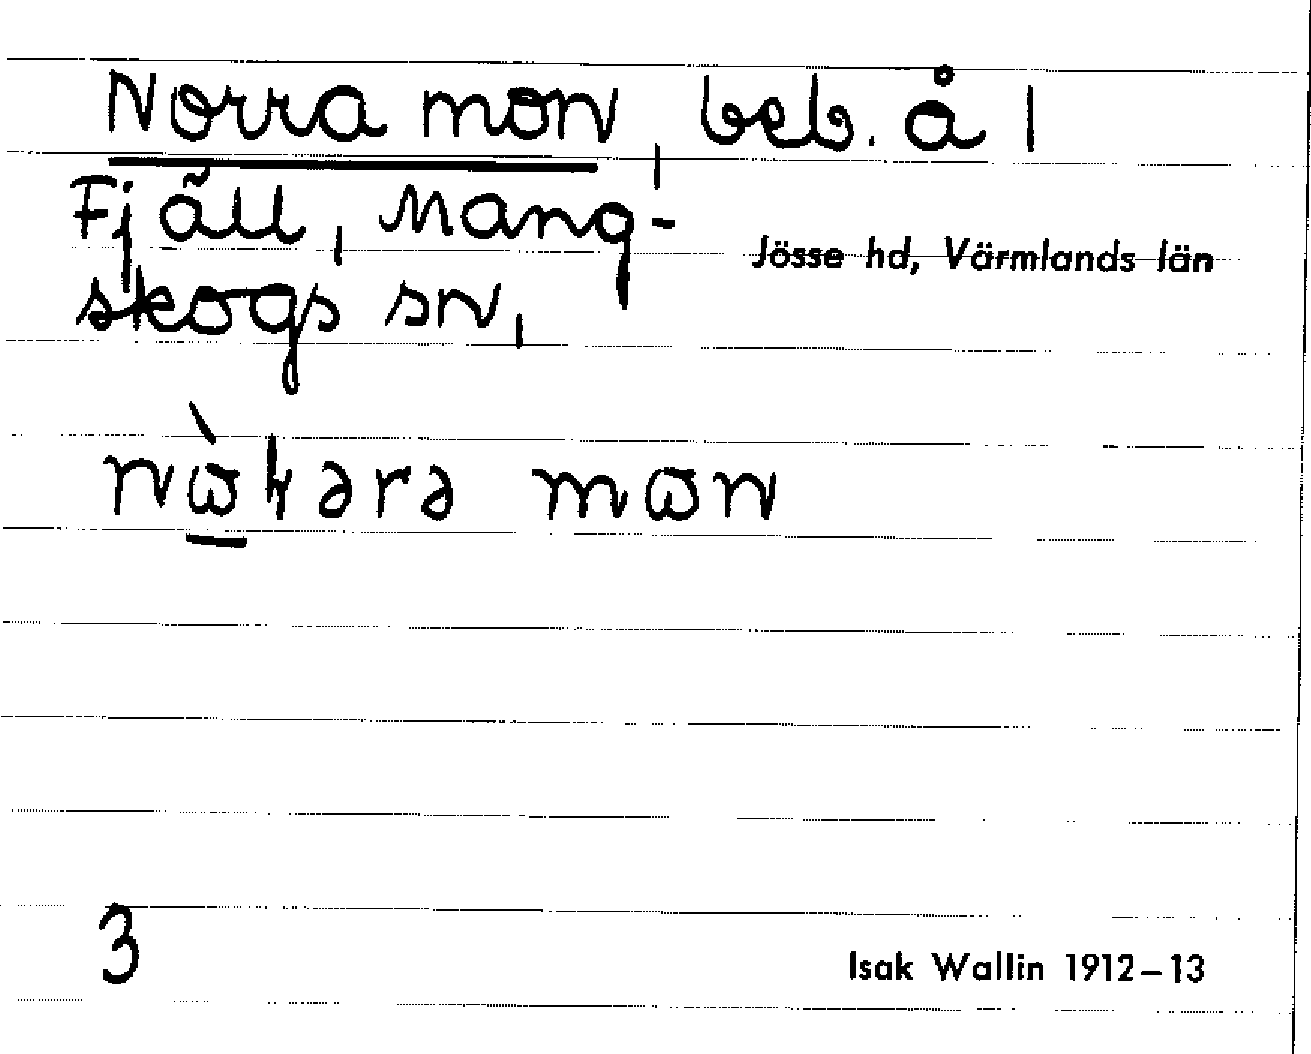 Norra mon, beb. å 1
Fjäll, Mang-
skogs sn,
Jösse hd, Värmlands län
mon
3
Isak Wallin 1912–13